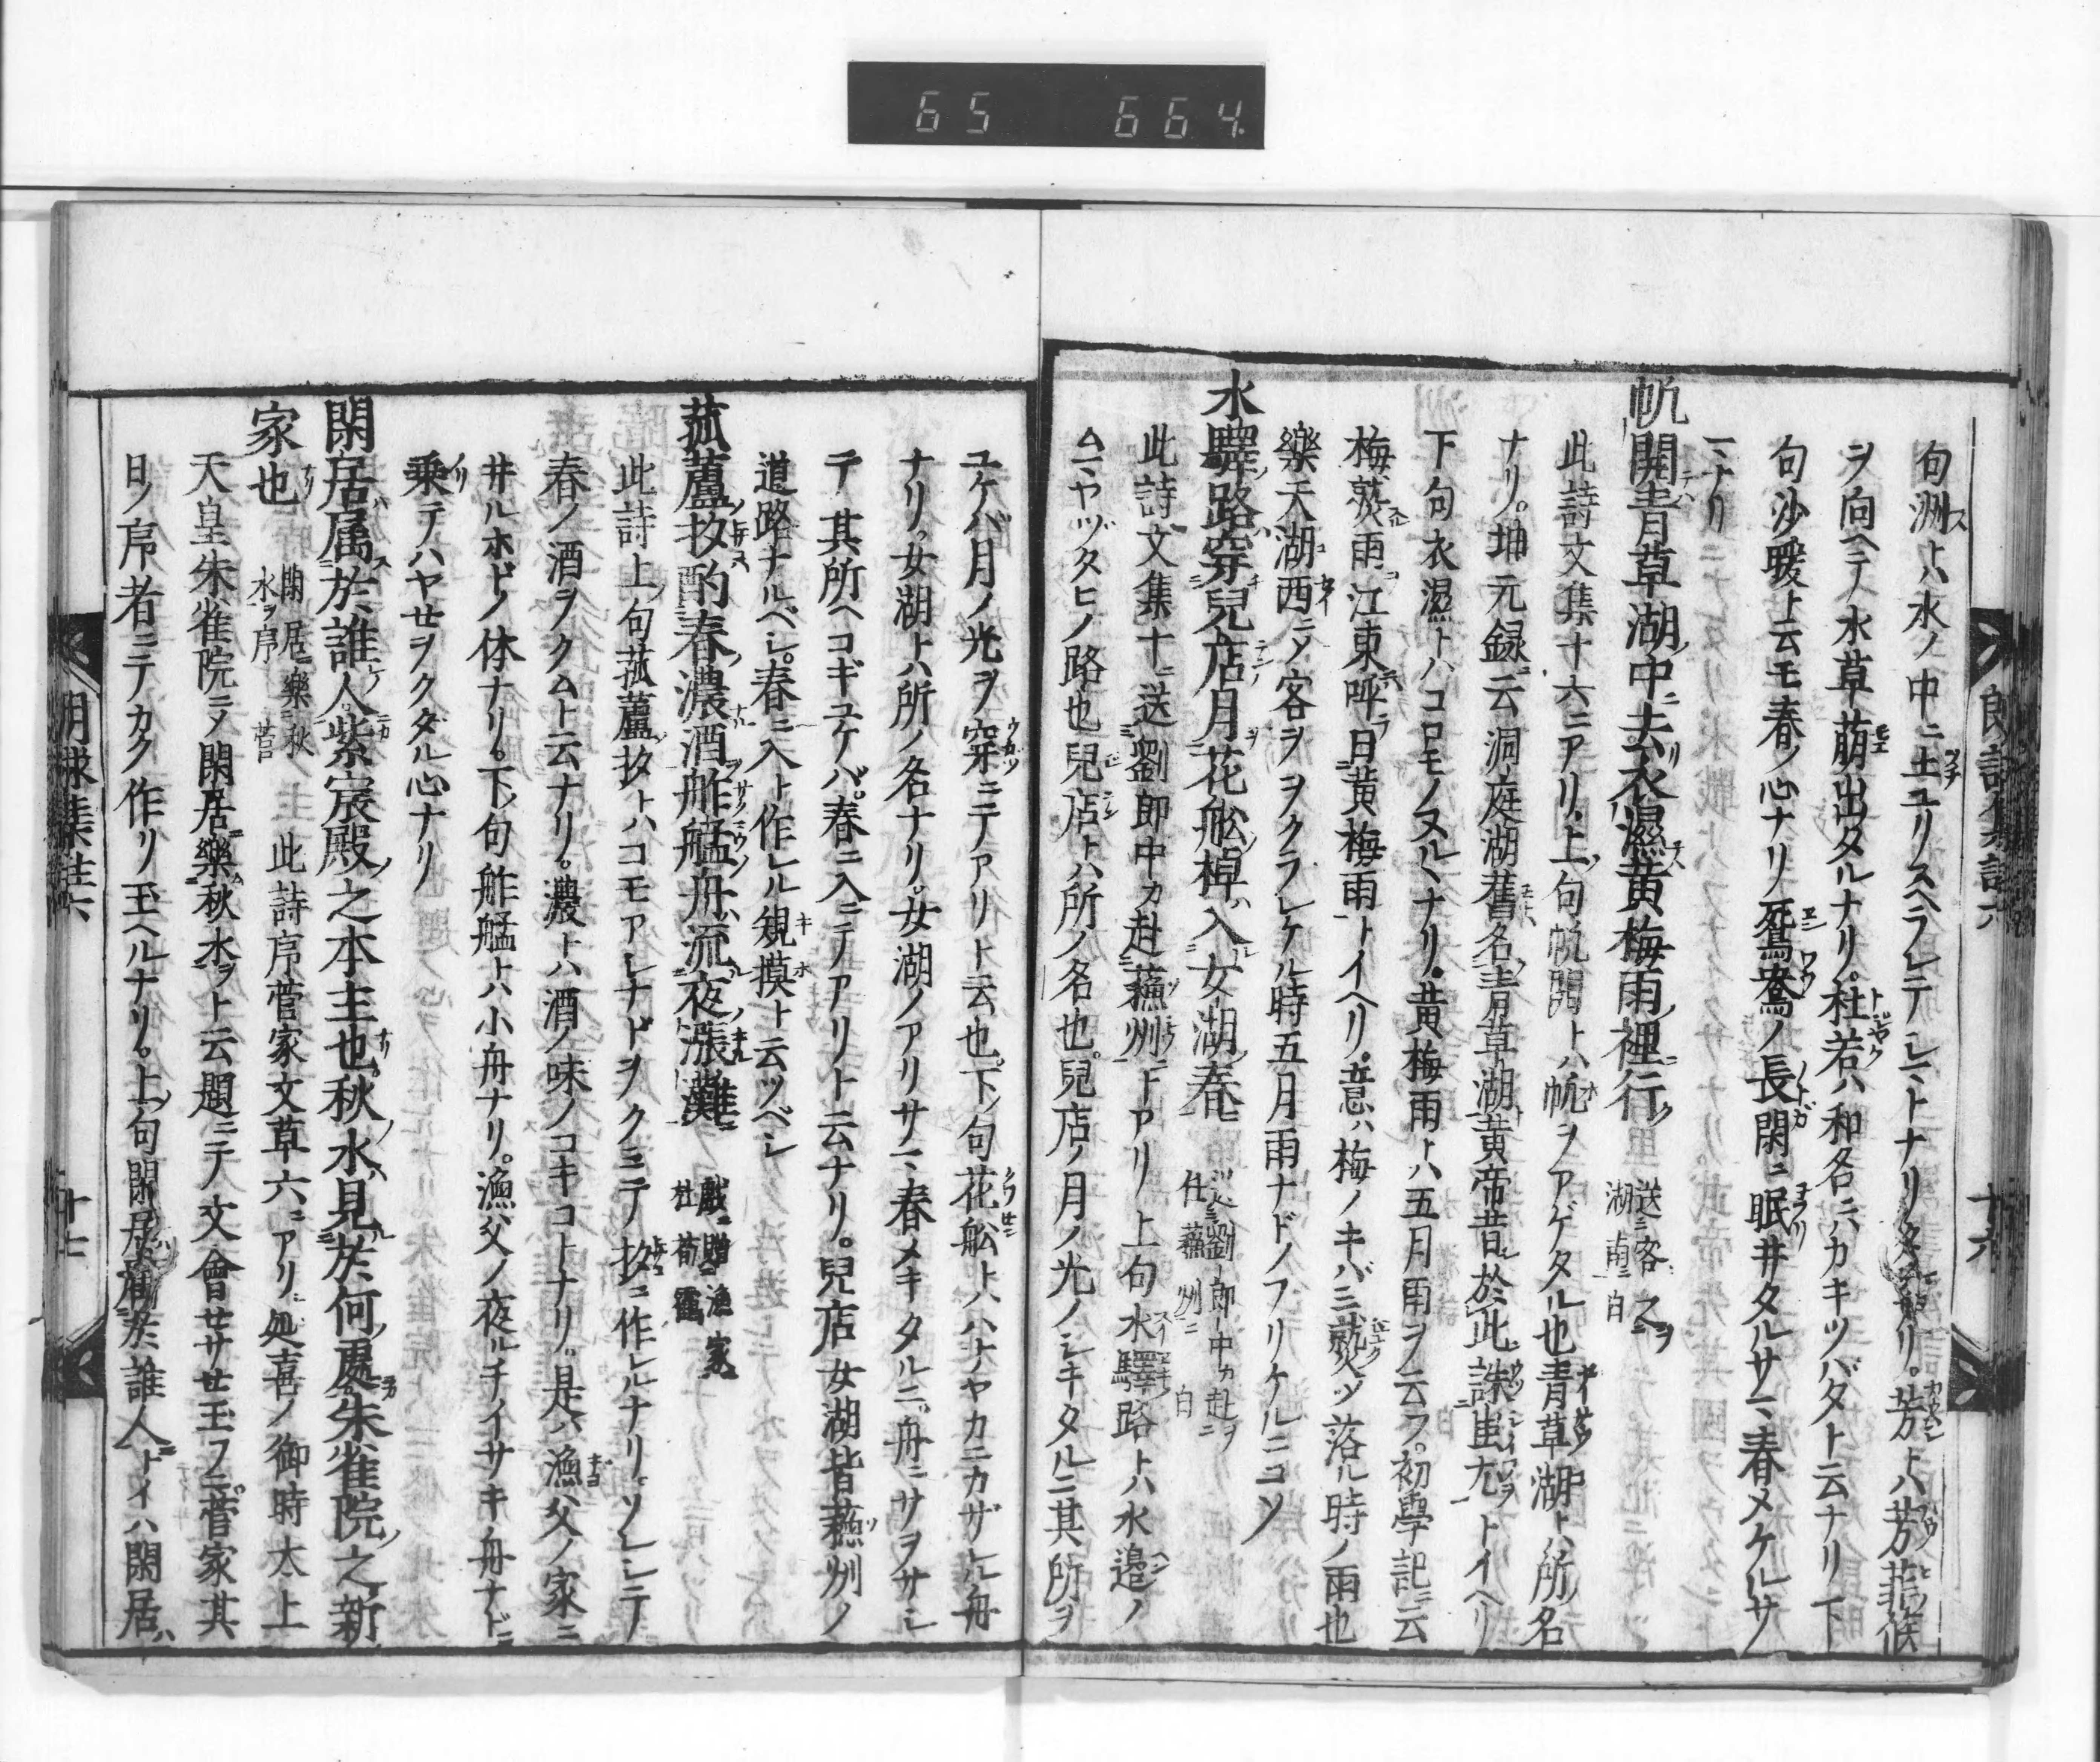 65 664
句洲トハ水ノ中ニ土ユリスヘラレテシヽトナリタ
ヲ向ヘテ水草萠出タルナリ。杜若ハ和名ニハカキツバタト云ナリ下
句沙暖ト云モ春ノ心ナリ鴛鴦ノ長閑ニ眠井タルサマ春メケルサ
マナリ
帆開青草湖中去衣濕黄梅雨裡行
送客之
湖南白
此詩文集十六ニアリ上句帆開トハ帆ヲアゲタル也青草湖トハ所ノ名
ナリ。坤元録ニ云洞庭湖舊名青草湖黄帝昔於此誅蚩尤トイヘリ
下句衣濕トハコロモノヌルヽナリ。黄梅雨トハ五月雨ヲ云フ。初學記ニ云
梅熟雨江東呼曰黄梅雨トイヘリ。意ハ梅ノキバミ熟シ落ル時ノ雨也
樂天湖西ニメ客ヲヲクラレケル時五月雨ナドノフリケルニコソ
水驛路穿兒店月花舩棹入女湖春
送劉郎中カ赴ヲ
任蘓州ニ 白
此詩文集十ニ送劉郎中カ赴蘓州ニトアリ 上句水驛路トハ水邉ノ
ムマヤヅタヒノ路也兒店トハ所ノ名也。兒店ノ月ノ光ノシキタルニ其所ヲ
朗詠集註六
十六
ユケバ月ノ光ヲ穿ニテアリト云也。下ノ句花舩トハハナヤカニカザレル舟
ナリ。女湖トハ所ノ名ナリ。女湖ノアリサマ春メキタルニ舟ニサヲサシ
テ其所ヘコギユケバ。春ニ入ニテアリト云ナリ。兒店女湖皆蘓州ノ
道路ナルベシ。春ニ入ト作レル規摸ト云ツベシ
菰蘆杓酌春濃酒舴艋舟流夜漲灘
戲贈漁家
杜荀鶴
此詩上句菰蘆杓トハコモアシナドヲクミテ杓ニ作レルナリ。ソレシテ
春ノ酒ヲクムト云ナリ。濃トハ酒ノ味ノコキコトナリ。是ハ漁父ノ家ニ
井ルホドノ体ナリ。下ノ句舴艋トハ小舟ナリ。漁父ノ夜ルチイサキ舟ナドニ
乗テハヤセヲクダル心ナリ
閑居属於誰人紫宸殿之本主也秋水見於何處朱雀院之新
家也
閑居樂秋
水ヲ序 菅
此詩序菅家文草六ニアリ処喜ノ御時太上
天皇朱雀院ニメ閑居樂秋水ヲト云題ニテ文會セサセ玉フニ。菅家其
日ノ序者ニテカク作リ玉ヘルナリ。上句閑居属於誰人トイハ閑居ハ
朗詠集註六
十七